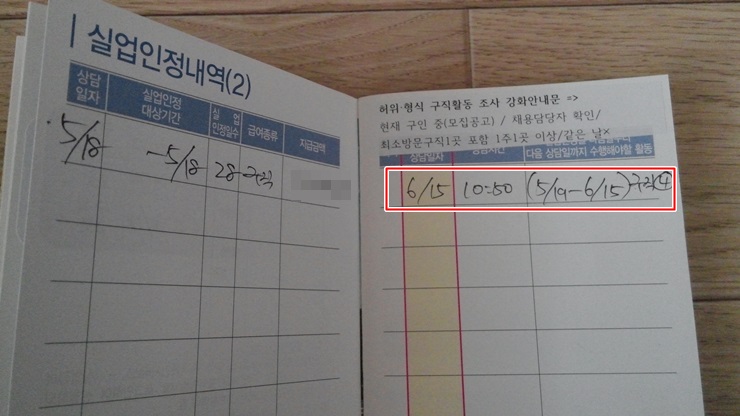 실업인정내역(2)
상담일자 실업인정 대상기간 실업 인정일수 급여종류 지급금액
5/18 -5/18 28 구직
허위·형식 구직활동 조사 강화안내문 =>
현재 구인 중(모집공고) / 채용담당자 확인/
최소방문구직1곳 포함 1주1곳 이상/같은 날×
상담일자 상담시간 다음 상담일까지 수행해야할 활동
6/15 10:50 (5/19-6/15)구직④